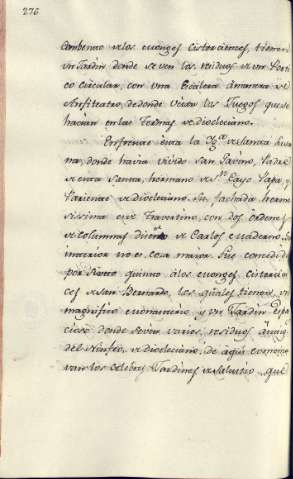 276
Combento de los Monges Cistercienses, tienen
un Jardin donde se ven los residuos de un Porti
co circular, con una Escalera a manera de
Anfiteatro, de donde veian los Juegos que se
hacian en las Termas de Diocleciano.
Enfrente esta la Yg.ª de Santa Susa
na, donde havia vivido San Gavino, Padre
de esta Santa, hermano de S.n Cayo Papa, y
Pariente de Diocleciano. Su fachada hermo
sissima es de Travertino, con dos ordenes
de columnas de Carlos Maderno. Su
interior no es cosa mayor fue concedida
por Sixto quinto a los Monges Cistercien
ces de San Bernardo, los quales tienen un
magnifico Monasterio, y un Jardin espa
cioso donde se ven varios residuos
del de Diocleciano, de aqui
van los celebres Jardines de Salustio que